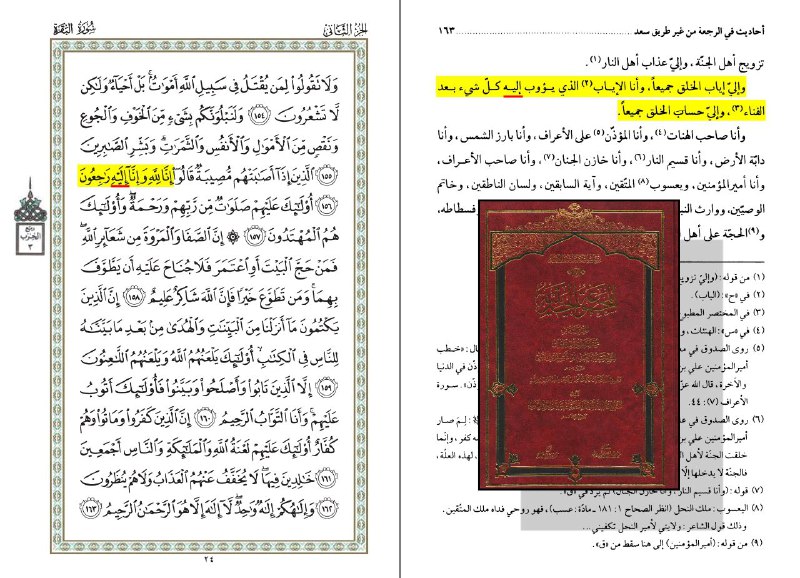 سورة البقرة
الجزء الثاني
وَلَا تَقُولُوا لِمَن يُقْتَلُ فِي سَبِيلِ اللَّهِ أَمْوَاتٌ بَلْ أَحْيَاءٌ وَلَٰكِن
لَّا تَشْعُرُونَ ١٥٤ وَلَنَبْلُوَنَّكُم بِشَيْءٍ مِّنَ الْخَوْفِ وَالْجُوعِ
وَنَقْصٍ مِّنَ الْأَمْوَالِ وَالْأَنفُسِ وَالثَّمَرَاتِ وَبَشِّرِ الصَّابِرِينَ
١٥٥ الَّذِينَ إِذَا أَصَابَتْهُم مُّصِيبَةٌ قَالُوا إِنَّا لِلَّهِ وَإِنَّا إِلَيْهِ رَاجِعُونَ
١٥٦ أُولَٰئِكَ عَلَيْهِمْ صَلَوَاتٌ مِّن رَّبِّهِمْ وَرَحْمَةٌ وَأُولَٰئِكَ
هُمُ الْمُهْتَدُونَ ١٥٧ ۞ إِنَّ الصَّفَا وَالْمَرْوَةَ مِن شَعَائِرِ اللَّهِ
فَمَنْ حَجَّ الْبَيْتَ أَوِ اعْتَمَرَ فَلَا جُنَاحَ عَلَيْهِ أَن يَطَّوَّفَ
بِهِمَا وَمَن تَطَوَّعَ خَيْرًا فَإِنَّ اللَّهَ شَاكِرٌ عَلِيمٌ ١٥٨ إِنَّ الَّذِينَ
يَكْتُمُونَ مَا أَنزَلْنَا مِنَ الْبَيِّنَاتِ وَالْهُدَىٰ مِن بَعْدِ مَا بَيَّنَّاهُ
لِلنَّاسِ فِي الْكِتَابِ أُولَٰئِكَ يَلْعَنُهُمُ اللَّهُ وَيَلْعَنُهُمُ اللَّاعِنُونَ
١٥٩ إِلَّا الَّذِينَ تَابُوا وَأَصْلَحُوا وَبَيَّنُوا فَأُولَٰئِكَ أَتُوبُ
عَلَيْهِمْ وَأَنَا التَّوَّابُ الرَّحِيمُ ١٦٠ إِنَّ الَّذِينَ كَفَرُوا وَمَاتُوا وَهُمْ
كُفَّارٌ أُولَٰئِكَ عَلَيْهِمْ لَعْنَةُ اللَّهِ وَالْمَلَائِكَةِ وَالنَّاسِ أَجْمَعِينَ
١٦١ خَالِدِينَ فِيهَا لَا يُخَفَّفُ عَنْهُمُ الْعَذَابُ وَلَا هُمْ يُنظَرُونَ
١٦٢ وَإِلَٰهُكُمْ إِلَٰهٌ وَاحِدٌ لَّا إِلَٰهَ إِلَّا هُوَ الرَّحْمَٰنُ الرَّحِيمُ ١٦٣
ربع
الحزب
٣
٢٤
أحاديث في الرجعة من غير طريق سعد ........ ١٦٣
تزويج أهل الجنّة ، وإليّ عذاب أهل النار(١).
وإليّ إياب الخلق جميعاً، وأنا الإياب(٢) الذي يؤوب إليه كلّ شيء بعد
الفناء(٣)، وإليّ حساب الخلق جميعاً.
وأنا صاحب الهنات(٤)، وأنا المؤذّن(٥) على الأعراف، وأنا بارز الشمس، وأنا
دابّة الأرض، وأنا قسيم النار(٦)، وأنا خازن الجنان(٧)، وأنا صاحب الأعراف،
وأنا أمير المؤمنين، ويعسوب(٨) المتّقين، وآية السابقين، ولسان الناطقين، وخاتم
الوصيّين، ووارث
فسطاطه،
و(٩)الحجّة على أهل
(١) من قوله: (وإليّ تزويج
(٢) في «ح»: (الباب).
(٣) في المختصر
(٤) في «س»: الهيئات،
(٥) روى الصدوق في
ال: «خطب
أمير المؤمنين
في الدنيا
والآخرة، قال الله
سورة
الأعراف (٧): ٤٤.
(٦) روى الصدوق في
لِمَ صار
أمير المؤمنين
خلقت الجنّة لأهل
لهذه العلّة،
فالجنّة لا يدخلها إلّا
(٧) قوله: (وأنا قسيم النار، وأنا خازن الجنان) لم يرد في «ق».
(٨) اليعسوب: ملك النحل (انظر الصحاح ١: ١٨١ ـ مادّة: عسب)، فهو روحي فداه ملك المتّقين.
وذلك قول الشاعر: ولايتي لأمير النحل تكفيني ...
(٩) من قوله: (أمير المؤمنين) إلى هنا سقط من «ق».